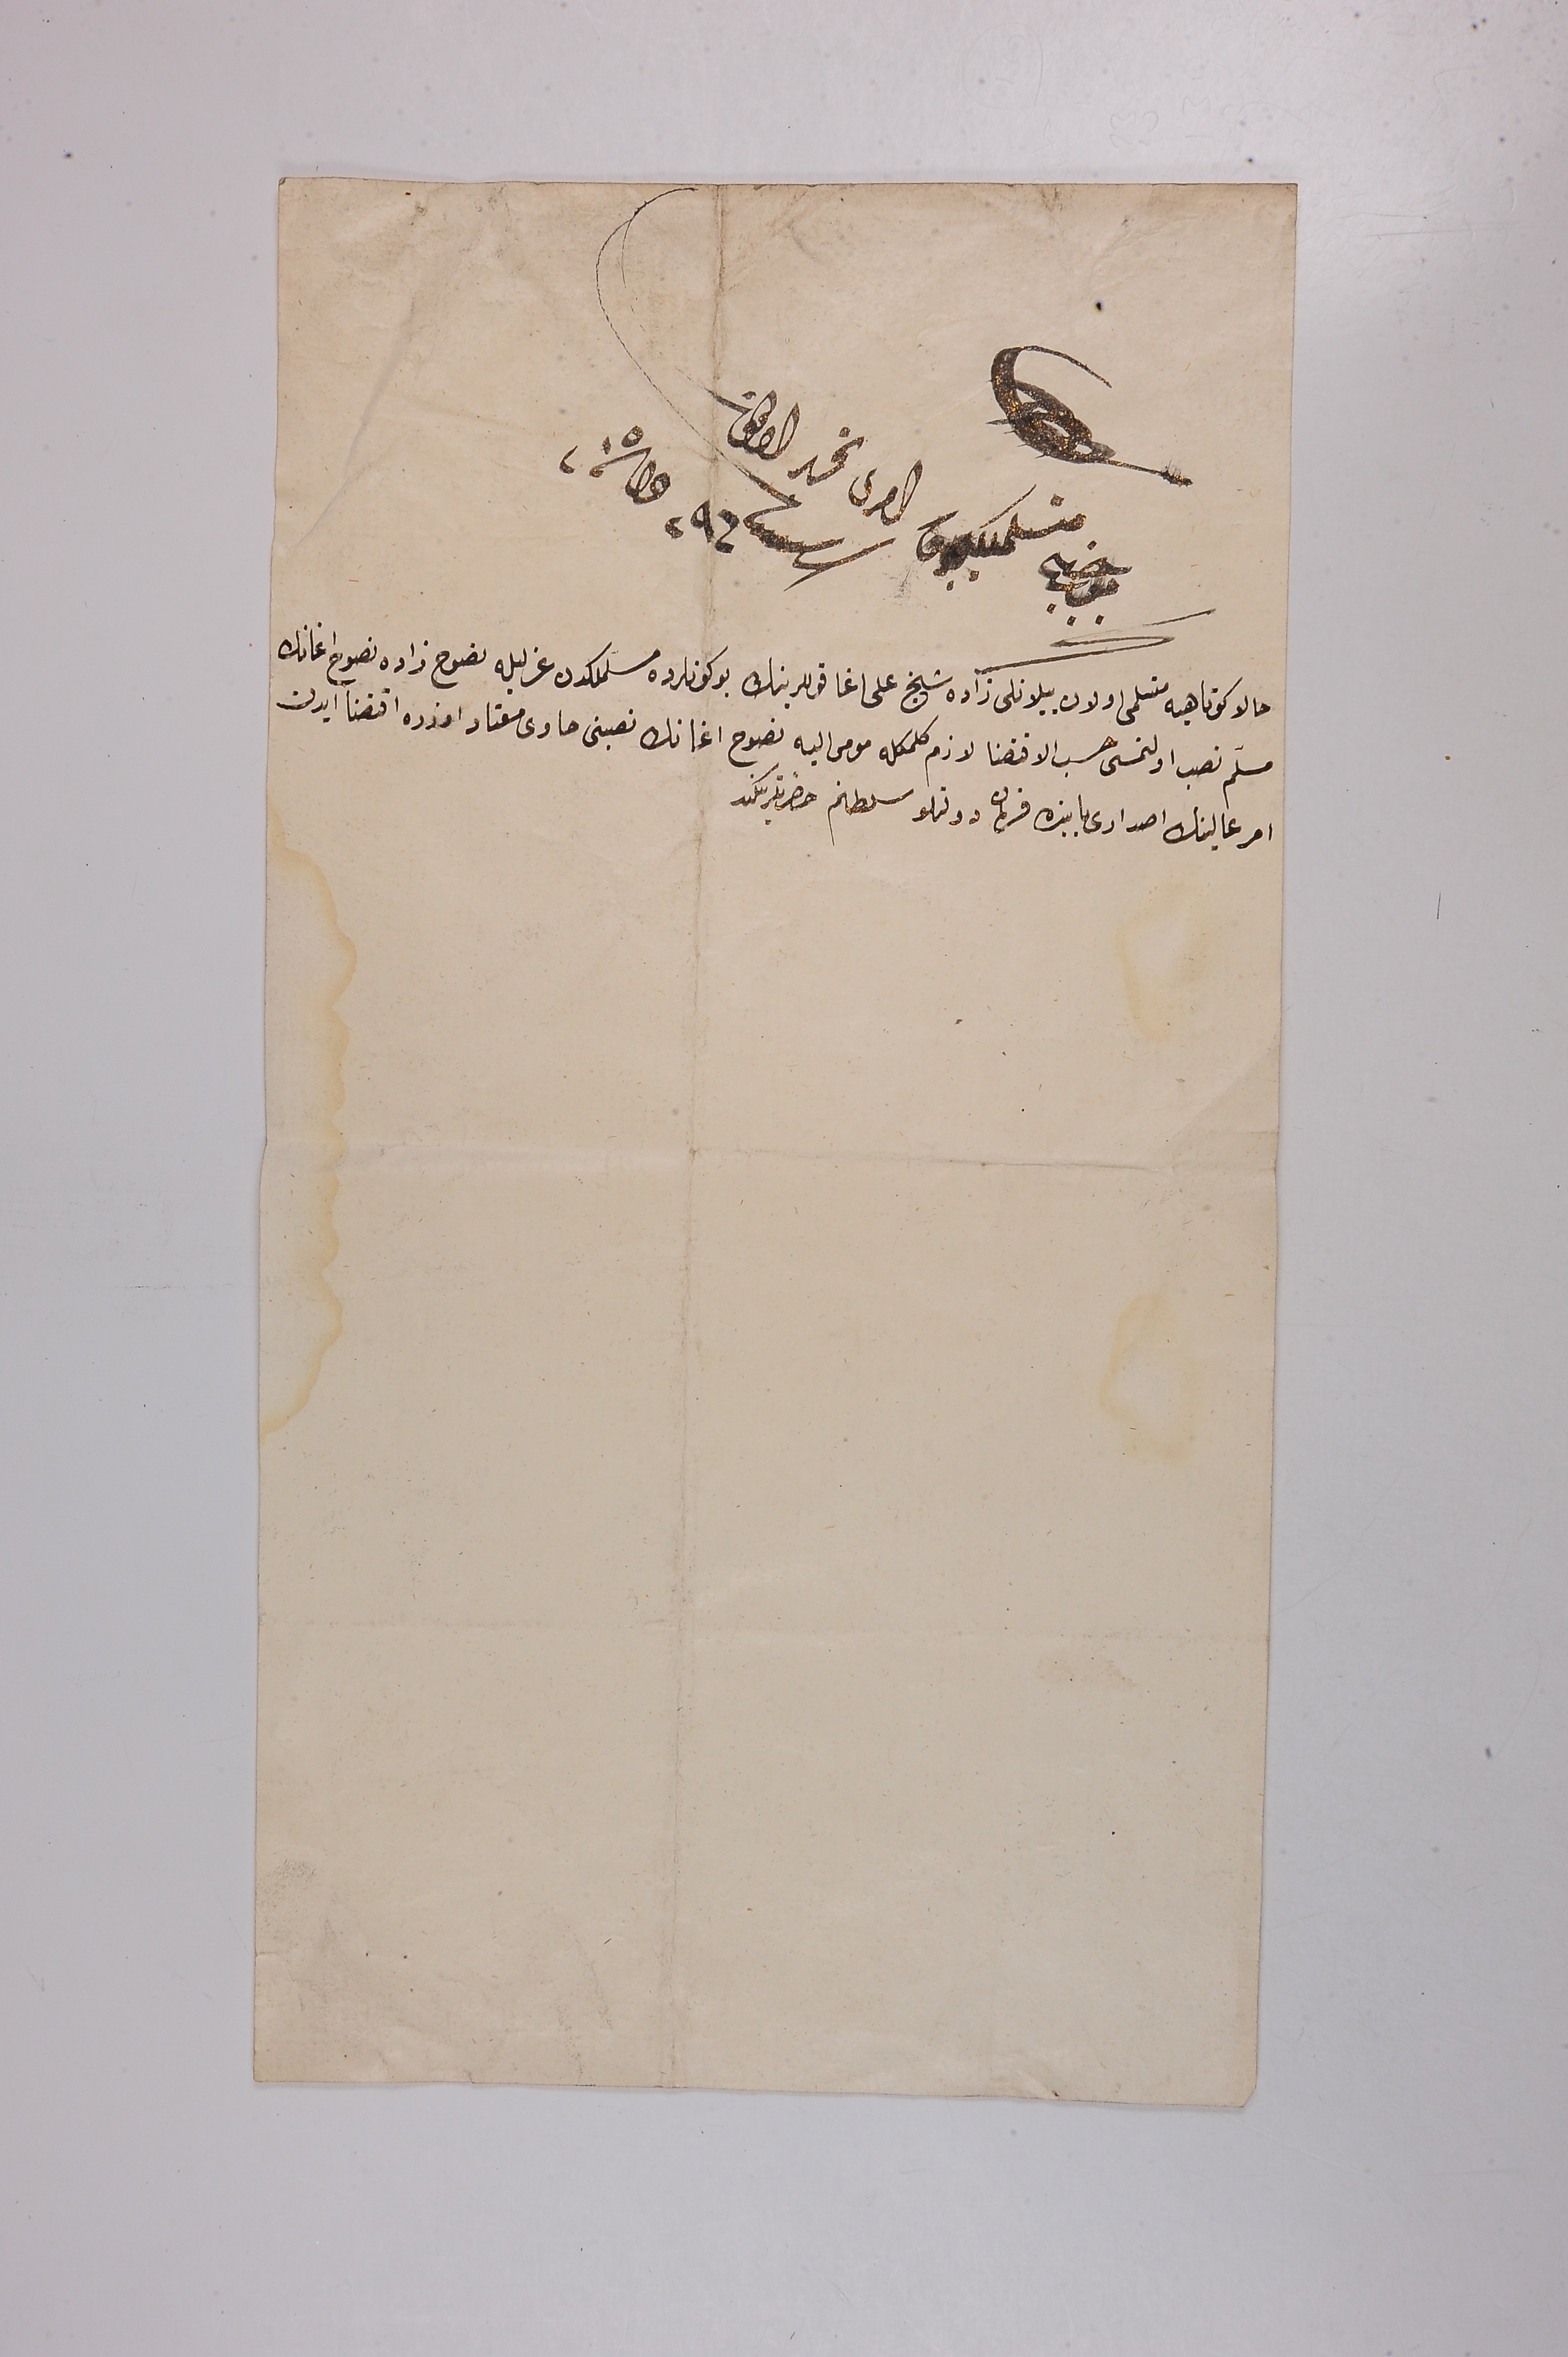 موجبنجه
متسلملكنه
امرى تحرير اولنه
حالا كوتاهيه متسلمى اولان بيلانلى زاده شيخ على اغا قوللرينك بوكونلرده مسلملكدن عزليله نصوح زاده نصوح اغانك
مسلم نصب اولنمسى حسب الاقتضا لازم كلمكله مومى اليه نصوح اغانك نصبنى حاوى معتاد اوزره اقتضا ايدن
امر عالينك اصدارى بابنده فرمان دولتلو سلطانم حضرتلرينكدر